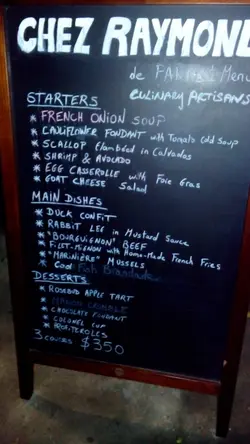 CHEZ RAYMOND
de Menu
CULINARY ARTISANS
STARTERS
* FRENCH ONION SOUP
* CAULIFLOWER FONDANT with Tomato Cold Soup
* SCALLOP flambéed in Calvados
* SHRIMP & AVOCADO
* EGG CASSEROLE with Foie Gras
* GOAT CHEESE Salad
MAIN DISHES
* DUCK CONFIT
* RABBIT LEG in Mustard Sauce
* "BOURGUIGNON" BEEF
* FILET-MIGNON with Home-Made French Fries
* "MARINIÈRE" MUSSELS
* Cod Fish Brandade
DESSERTS
* ROSEBUD APPLE TART
* MANGO CRUMBLE
* CHOCOLATE FONDANT
* COLONEL CUP
* PROFITEROLES
3 COURSES $350